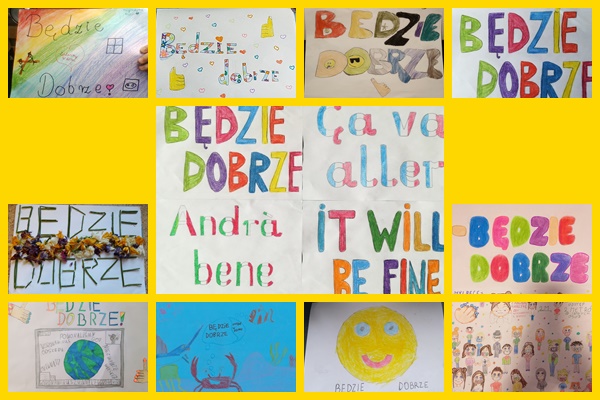 Będzie
Dobrze
Będzie
dobrze
BĘDZIE
DOBRZE
BĘDZIE
DOBRZE
BĘDZIE
DOBRZE
Ça va
aller
Andrà
bene
iT WiLL
BE FINE
BĘDZIE
DOBRZE
BĘDZIE
DOBRZE
BĘDZIE
DOBRZE!
BĘDZIE
DOBRZE
BĘDZIE DOBRZE